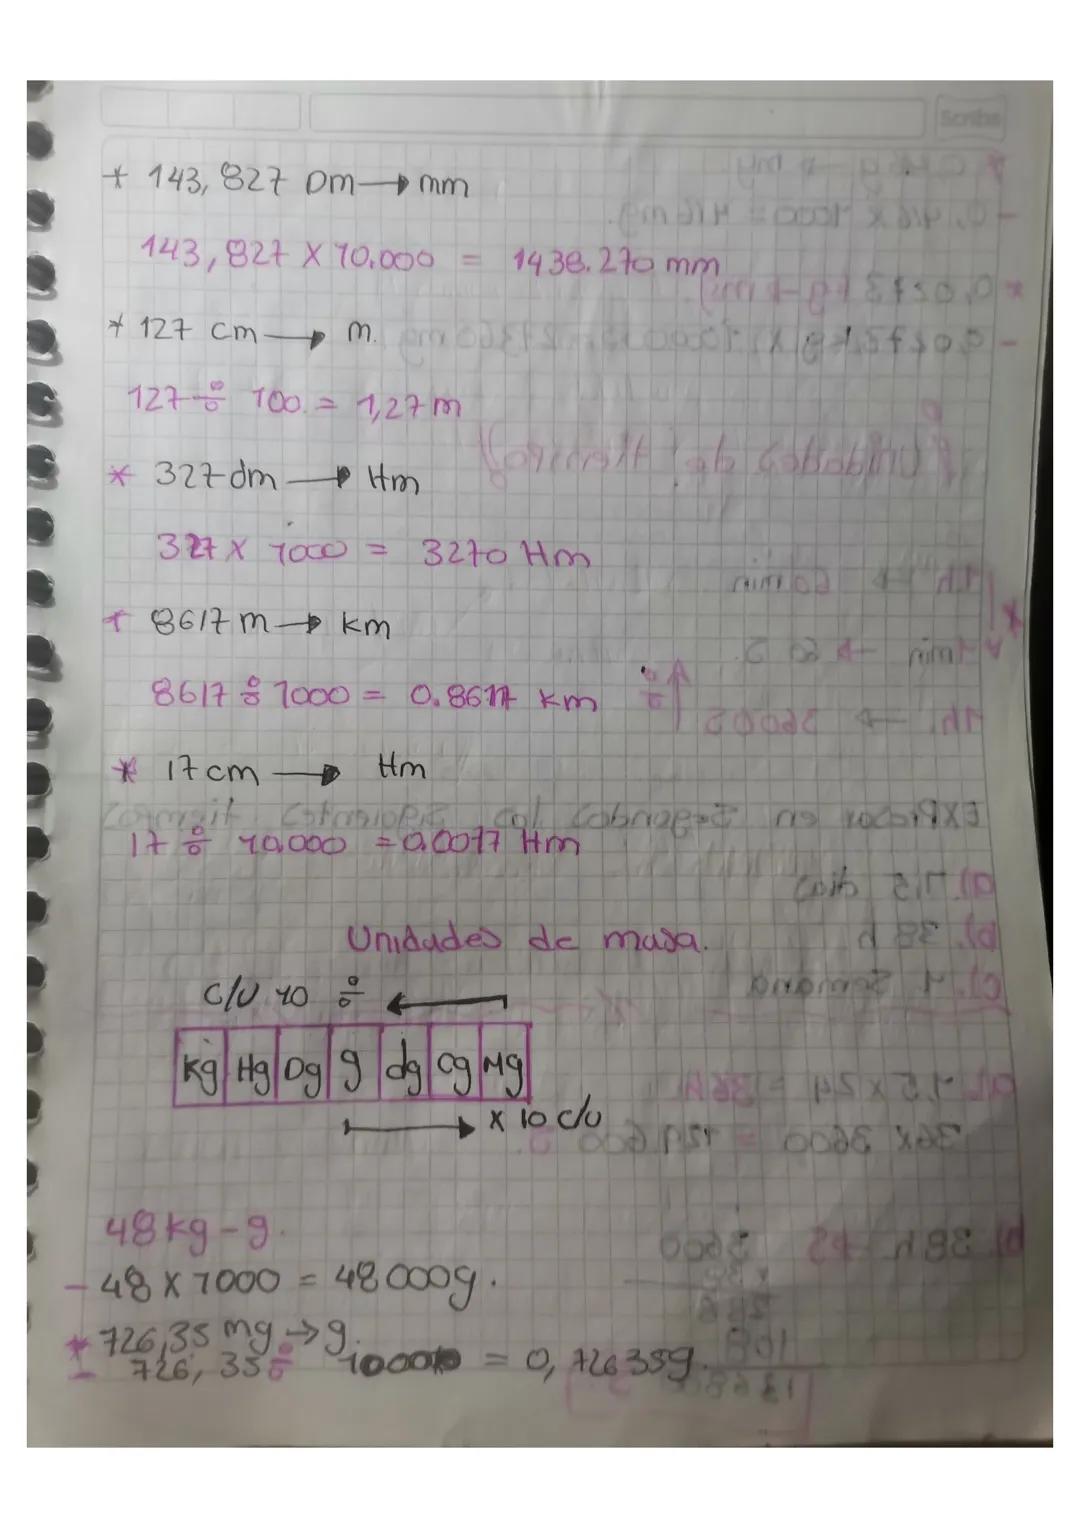 Scribe
* 143,827 Dm → mm
143,827 x 10.000 = 1438.270 mm
* 127 cm → m.
127 ÷ 100 = 1,27 m
* 327 dm → Hm
327 x 1000 = 3270 Hm
* 8617 m → km
8617 ÷ 1000 = 0.8617 km
* 17 cm → Hm
17 ÷ 10,000 = 0,0017 Hm
Unidades de masa.
c/u 10 ÷ ←
Kg Hg Dg g dg cg Mg
→ x 10 c/u
48 kg - g.
- 48 x 1000 = 48000g.
* 726,35 mg → g.
- 726,35 ÷ 1000 = 0,72635g.